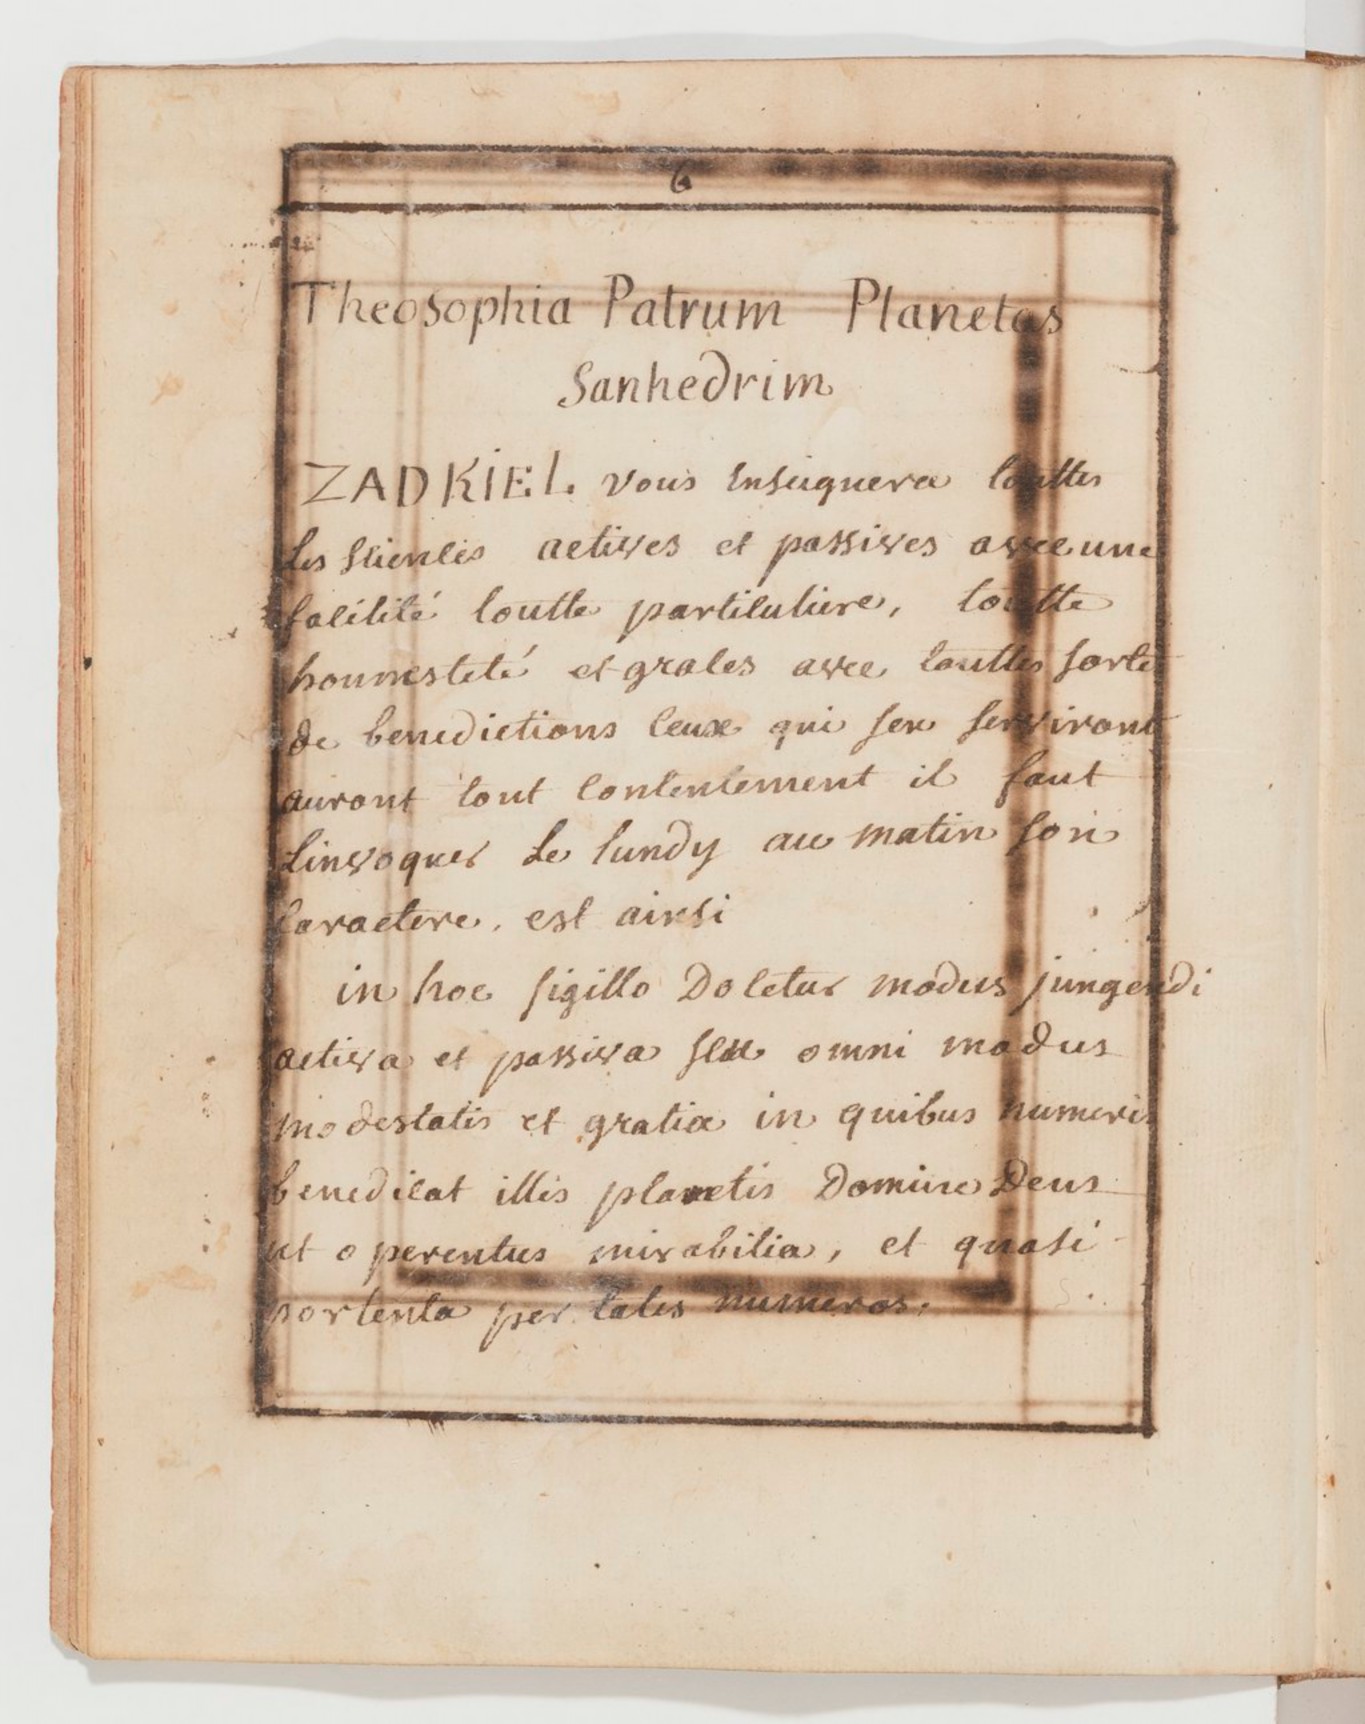 6
Theosophia Patrum Planetas
Sanhedrim
ZADKIEL vous Enseignera touttes
Les sciences actives et passives avec une
facilité toutte particuliere, toutte
honnesteté et graces avec touttes sorte
de benedictions ceux qui sen serviront
auront tout contentement il faut
Linvoquer Le lundy au matin son
Caractere. est ainsi
in hoc sigillo Docetur modus jungendi
activa et passiva seu omni modus
modestatis et gratiæ in quibus numeris
benedicat illis planetis Domine Deus
ut operentus mirabilia, et quasi
portenta per tales numeros.